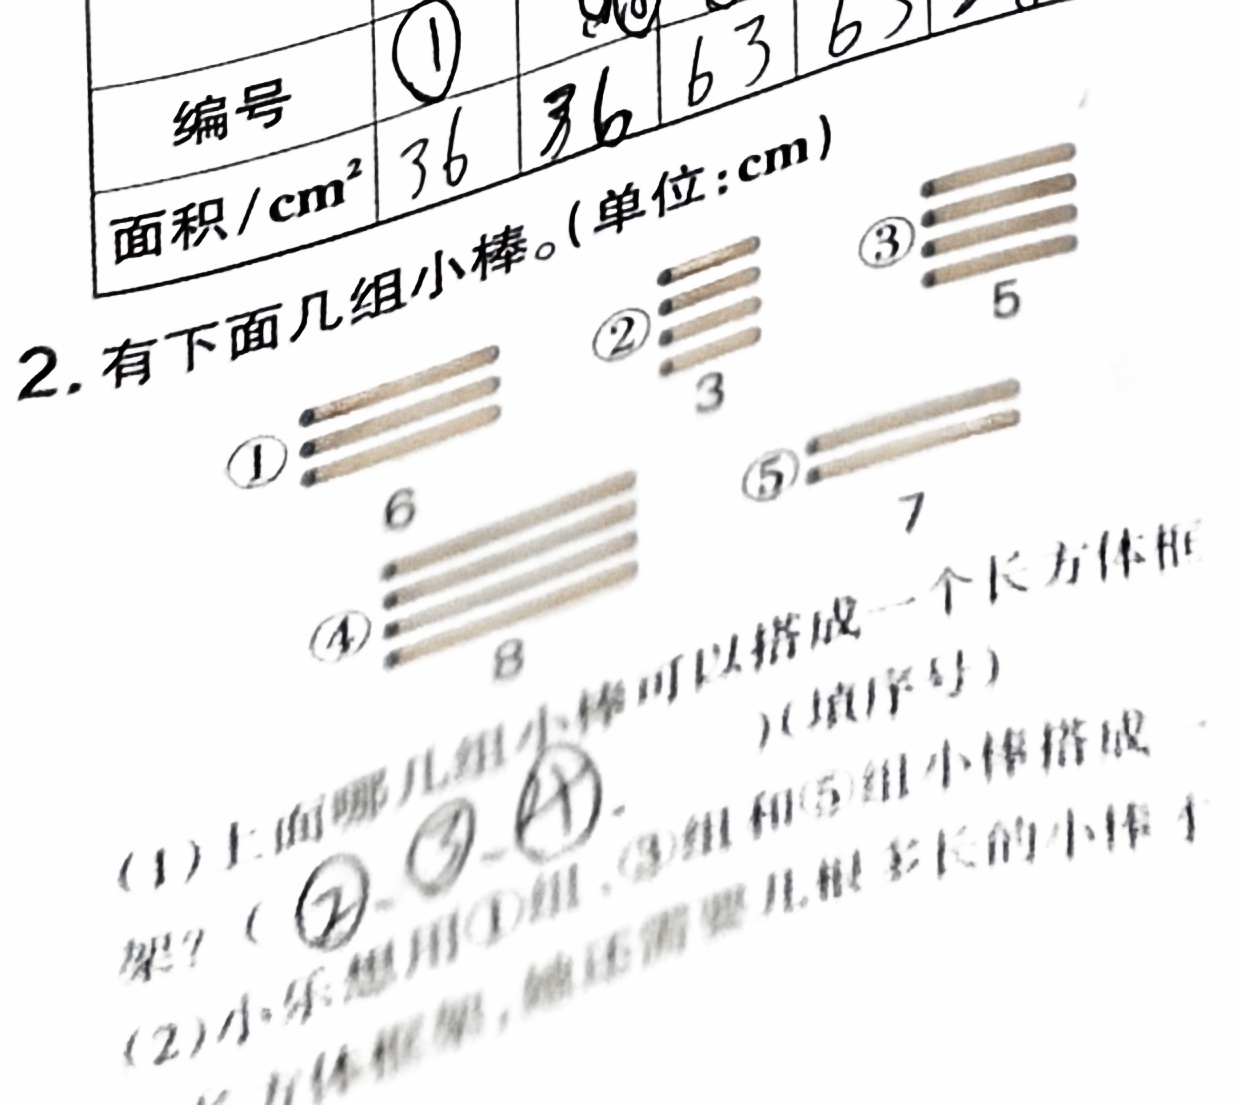 编号 ① 63 63
面积/cm² 36 36
2.有下面几组小棒。(单位:cm)
① 6
② 3
③ 5
④ 8
⑤ 7
(1)上面哪几组小棒可以搭成一个长方体框
架?( ②、③、④. )(填序号)
(2)小乐想用①组、③组和⑤组小棒搭成一
长方体框架,她还需要几根多长的小棒才